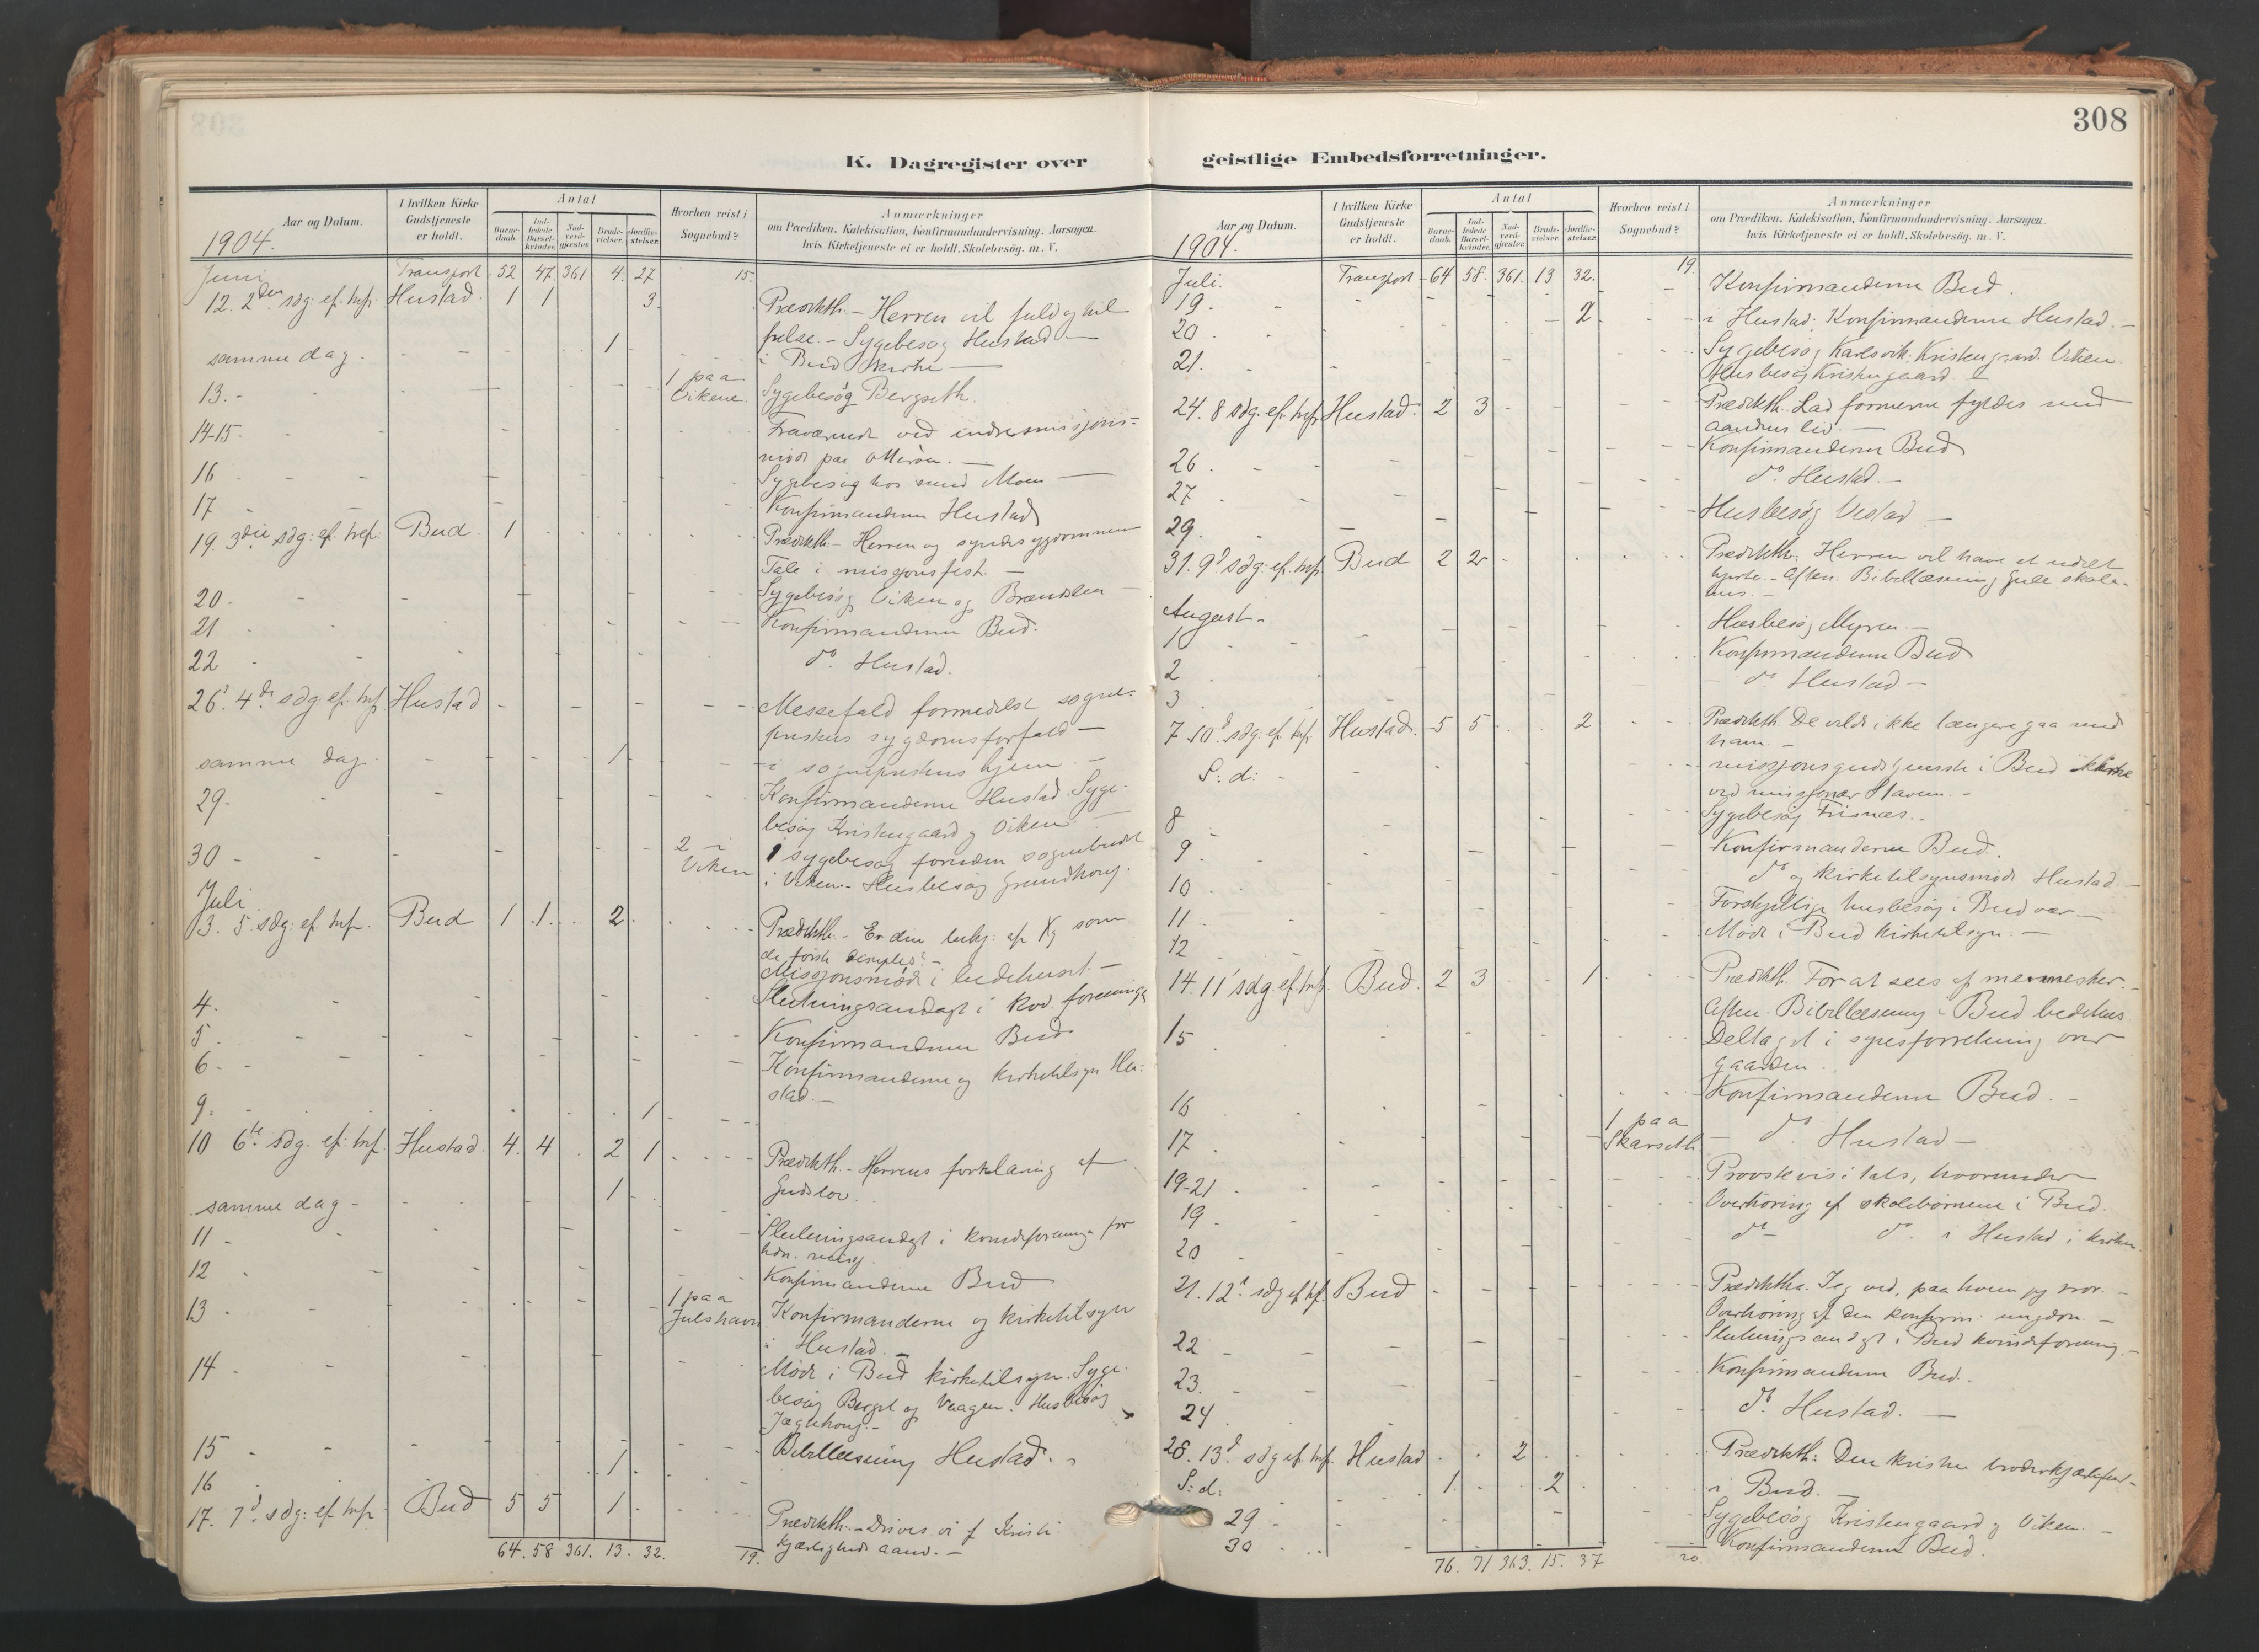 308
K. Dagregister over geistlige Embedsforretninger.
Aar og Datum.
1904.
I hvilken Kirke Gudstjeneste er holdt.
Antal
Barne-daab.
Ind-ledede Barsel-kvinder.
Nad-verd-gjester.
Brude-vielser.
Jordfæ-stelser.
Hvorhen reist i Sognebud?
Anmærkninger
om Prædiken, Katekisation, Konfirmandundervisning. Aarsagen,
hvis Kirketjeneste ei er holdt, Skolebesøg. m. V.
Juni Transport 52 47 361 4. 27 15.
12. 2den sdg. ef. tref. Hustad. 1 1 3. Prædikth. - Herren vil fuld og hel
frelse. - Sygebesøg Hustad -
samme dag. 1 i Bud kirke -
13. 1 paa Vikene. Sygebesøg Bergseth.
14-15. Fraværende ved indremissjons=
møde paa Otterøen. -
16 Sygebesøg hos Moen -
17 Konfirmanderne Hustad
19. 3die sdg. ef. tref. Bud. 1 Prædikth. - Herren og syndesygdommen
Tale i missjonsfest. -
20. Sygebesøg Viken og
21 Konfirmanderne Bud.
22 do. Hustad.
26. 4de sdg. ef. tref. Hustad Messefald formedelst sogne-
prestens sygdomsforfald -
samme dag. 1 i sogneprestens hjem. -
29. Konfirmanderne Hustad. Syge-
besøg Kristengaard og Viken. -
30 - 2 i Viken 1 sygebesøg foruden sognebudet
i Viken. - Husbesøg Grundhaug.
Juli
3. 5. sdg. ef. tref. Bud 1 1 2 Prædikth. - Er den som
de første disciples? -
Missjonsmøde i bedehuset. -
4. Slutningsandagt i kvd. forening
5. Konfirmanderne Bud
6. Konfirmanderne og kirketilsyn Hu-
stad. -
9. 1
10 6te sdg. ef. tref. Hustad. 4. 4 2 1 Prædikth. - Herrens forklaring af
Guds lov.
samme dag - 1
11 - Slutningsandagt i kvindeforening for

12 Konfirmanderne Bud
13 1 paa Julshavn Konfirmanderne og kirketilsyn
i Hustad. -
14 Møde i Bud kirketilsyn. Syge-
besøg Berget og Vaagen. Husbesøg
Jægtehaug. -
15 Bibellæsning Hustad.
16 1
17. 7d. sdg. ef. tref. Bud 5 5 1 Prædikth. - Drives vi af Kristi
kjærligheds aand. -
64. 58 361. 13. 32. 19.
Aar og Datum.
1904.
I hvilken Kirke Gudstjeneste er holdt.
Antal
Barne-daab.
Ind-ledede Barsel-kvinder.
Nad-verd-gjester.
Brude-vielser.
Jordfæ-stelser.
Hvorhen reist i Sognebud?
Anmærkninger
om Prædiken, Katekisation, Konfirmandundervisning. Aarsagen,
hvis Kirketjeneste ei er holdt, Skolebesøg. m. V.
Juli. Transport 64 58. 361. 13 32. 19.
19. Konfirmanderne Bud.
20 2 i Hustad. Konfirmanderne Hustad. -
21. Sygebesøg Karlsvik. Kristengaard. Viken.
Husbesøg Kristengaard. -
24. 8 sdg. ef. tref. Hustad. 2 3 Prædikth. Lad formerne fyldes med
aandens liv. -
26 Konfirmanderne Bud
27 do. Hustad. -
29. Husbesøg Vestad -
31. 9d. sdg. ef. tref. Bud 2 2 Prædikth: Herren vil have et udelt
hjerte. - Aften: Bibellæsning Gule skole-
hus. -
August.
1 Husbesøg Myren. -
2 Konfirmanderne Bud
3 do Hustad -
7. 10d. sdg. ef. tref. Hustad. 5 5 2 Prædikth. De vilde ikke længere gaa med
ham. -
S: d: missjonsgudstjeneste i Bud kirke
ved missjonær Staven. -
8 Sygebesøg Frisnæs. -
9 Konfirmanderne Bud.
10 do og kirketilsynsmøde Hustad -
11 Forskjellige husbesøg i Budvær -
12 Møde i Bud kirketilsyn. -
14. 11' sdg. ef. tref. Bud. 2 3 1 Prædikth. For at sees af mennesker. -
Aften. Bibellæsning i Bud bedehus.
15 Deltaget i synsforretning over
gaarden.
16 Konfirmanderne Bud. -
17 1 paa Skarseth do. Hustad -
19-21 Provstevisitats, hvorunder
19 Overhøring af skolebørnene i Bud.
20 do - do. i Hustad i kirken.
21. 12d. sdg ef. tref. Bud Prædikth. Jeg ved, paa hvem jeg tror. -
Overhøring af den konfirm. ungdom. -
22 - Slutningsandagt i Bud kvindeforening. -
23. Konfirmanderne Bud.
24 do. Hustad. -
28. 13d. sdg ef. tref. Hustad 2 Prædikth: Den kristne broderkjærlighed -
S: d: 1. 2 i Bud. -
29 Sygebesøg Kristengaard og Viken. -
30 Konfirmanderne Bud.
76. 71 363. 15. 37 20.